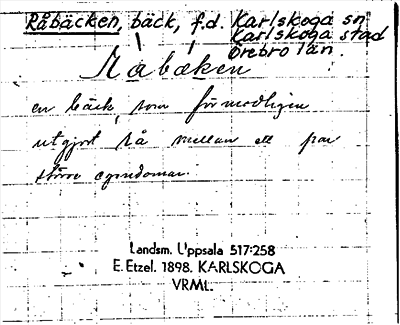 Råbäcken, bäck, f.d. Karlskoga sn
Karlskoga stad
Örebro län.
Råbäcken
en bäck, som förmodligen
utgjort rå mellan ett par
större egendomar.
Landsm. Uppsala 517:258
E. Etzel. 1898. KARLSKOGA
VRML.